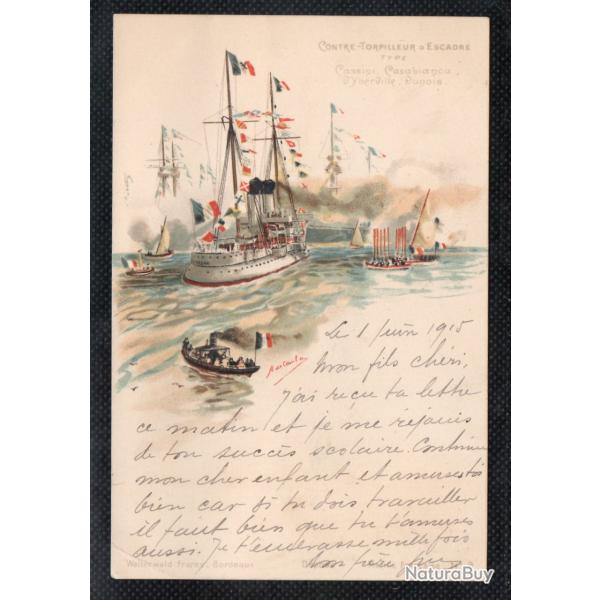 CONTRE-TORPILLEUR D'ESCADRE
TYPE
Cassini, Casabianca,
D'Yberville, Dunois.
Le 1 Juin 1915
Mon fils chéri,
j'ai reçu ta lettre
ce matin et je me réjouis
de ton succès scolaire. Continue
mon cher enfant et amuses toi
bien car si tu dois travailler
il faut bien que tu t'amuses
aussi. Je t'embrasse mille fois
ton père
Wetterwald Frères, Bordeaux
NaturaBuy